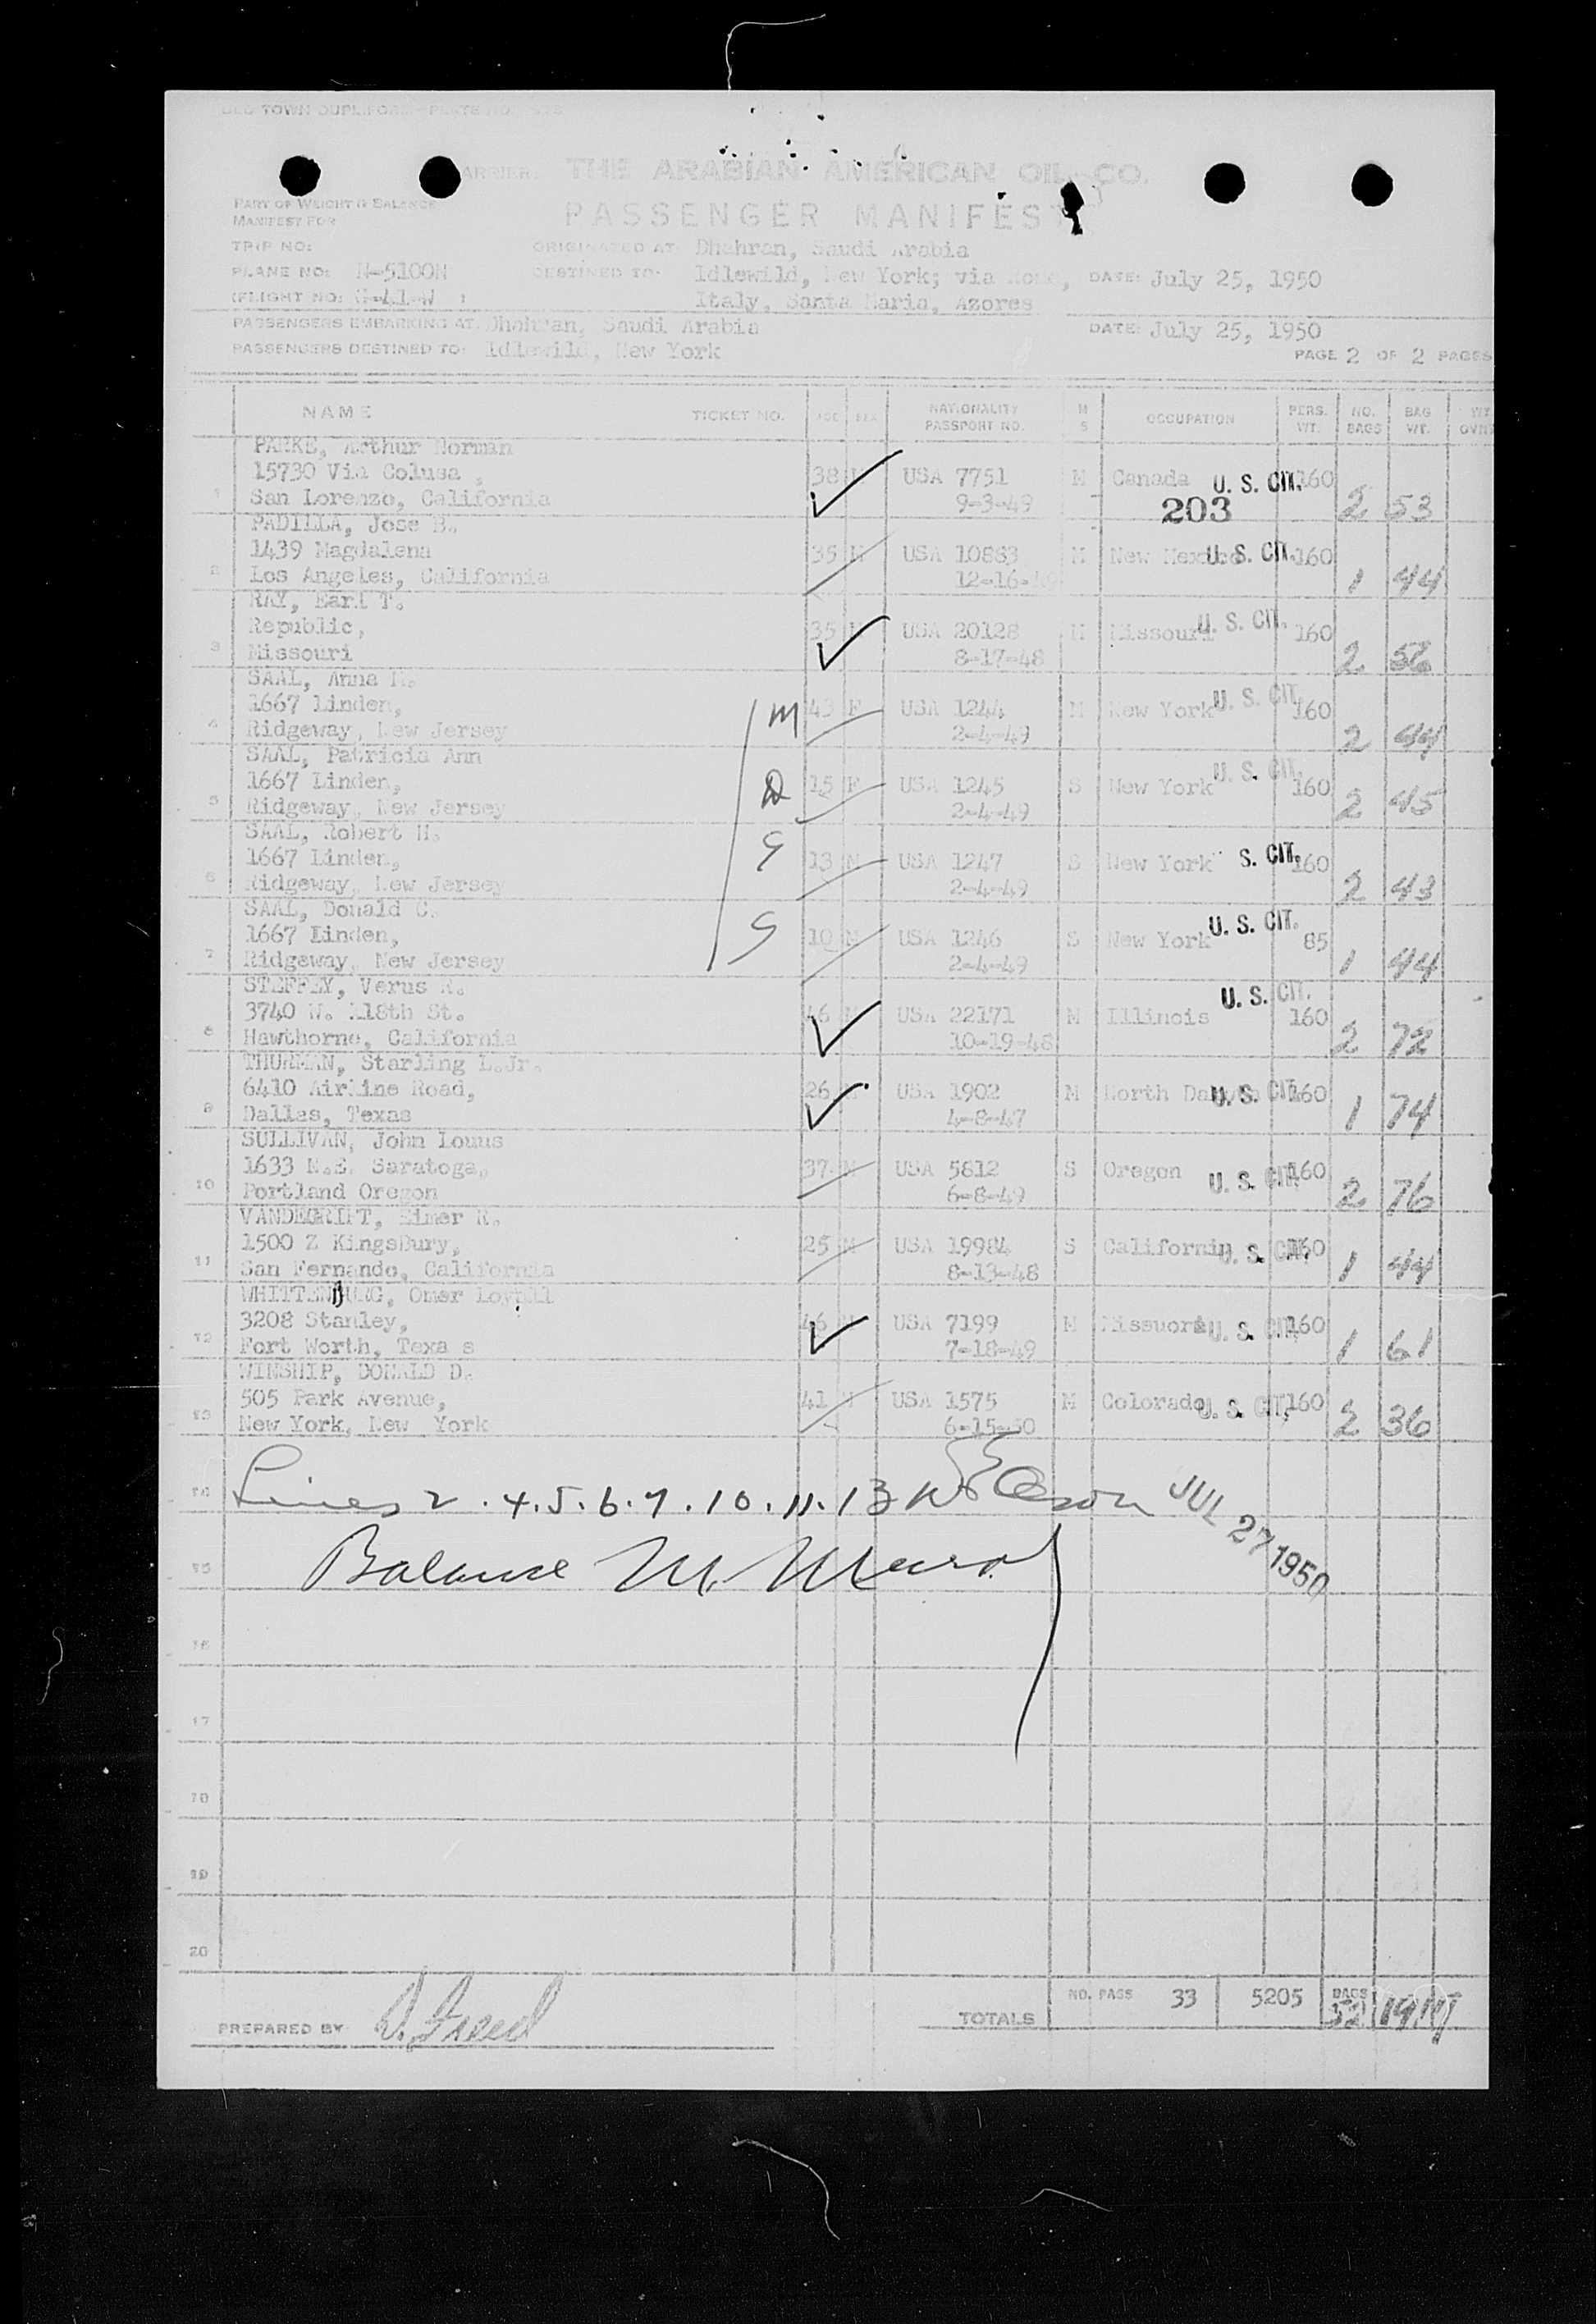 OLD TOWN DUPLIFORM
CARRIER: THE ARABIAN AMERICAN OIL CO.
PART OF WEIGHT & BALANCE
MANIFEST FOR
PASSENGER MANIFEST
TRIP NO: ORIGINATED AT Dhahran, Saudi Arabia
PLANE NO: N-5100N DESTINED TO: Idlewild, New York; via Rome, DATE: July 25, 1950
(FLIGHT NO: ) Italy, Santa Maria, Azores
PASSENGERS EMBARKING AT: Dhahran, Saudi Arabia DATE: July 25, 1950
PASSENGERS DESTINED TO: Idlewild, New York
PAGE 2 OF 2 PAGES
NAME TICKET NO. AGE SEX NATIONALITY PASSPORT NO. M S OCCUPATION PERS. WT. NO. BAGS BAG WT.
PARKE, Arthur Norman
15730 Via Colusa , 38 M USA 7751 M Canada U. S. CIT. 160
1 San Lorenzo, California 9-3-49 203 2 53
PADILLA, Jose B.
1439 Magdalena 35 M USA 10883 M New Mexico U. S. CIT. 160
2 Los Angeles, California 12-16-49 1 44
RAY, Earl T.
Republic, 35 M USA 20128 M Missouri U. S. CIT. 160
3 Missouri 8-17-48 2 56
SAAL, Anna M.
1667 Linden, M 43 F USA 1244 M New York U. S. CIT. 160
4 Ridgeway, New Jersey 2-4-49 2 44
SAAL, Patricia Ann
1667 Linden, D 15 F USA 1245 S New York U. S. CIT. 160
5 Ridgeway, New Jersey 2-4-49 2 45
SAAL, Robert M.
1667 Linden, S 13 M USA 1247 S New York S. CIT. 160
6 Ridgeway, New Jersey 2-4-49 2 43
SAAL, Donald C.
1667 Linden, S 10 M USA 1246 S New York U. S. CIT. 85
7 Ridgeway, New Jersey 2-4-49 1 44
STEFFEY, Verus R.
3740 W. 118th St. 46 M USA 22171 M Illinois U. S. CIT. 160
8 Hawthorne, California 10-19-48 2 72
THURMAN, Starling L.Jr.
6410 Airline Road, 26 M USA 1902 M North Dakota U. S. CIT. 160
9 Dallas, Texas 4-8-47 1 74
SULLIVAN, John Louus
1633 N.E. Saratoga, 37 M USA 5812 S Oregon U. S. CIT. 160
10 Portland Oregon 6-8-49 2 76
VANDEGRIFT, Elmer R.
1500 Z Kingsbury, 25 M USA 19984 S California U. S. CIT. 160
11 San Fernando, California 8-13-48 1 44
WHITTENBURG, Omer Loyall
3208 Stanley, 46 M USA 7199 M Missuori U. S. CIT. 160
12 Fort Worth, Texa s 7-18-49 1 61
WINSHIP, DONALD D.
505 Park Avenue, 41 M USA 1575 M Colorado U. S. CIT. 160
13 New York, New York 6-15-50 2 36
14 Lines 2 . 4 . 5 . 6 . 7 . 10 . 11 . 13 JUL 27 1950
15 Balance M.
16
17
18
19
20
PREPARED BY TOTALS NO. PASS 33 5205 BAGS 52